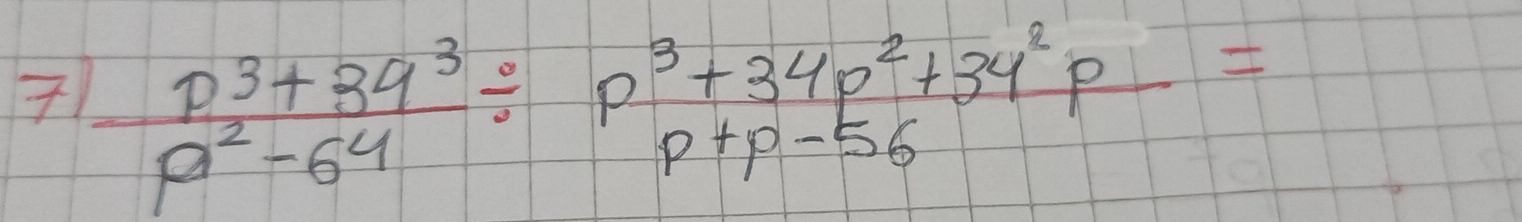 7) p³+34³/p²-64 ÷ p³+34p²+34²p/p+p-56 =